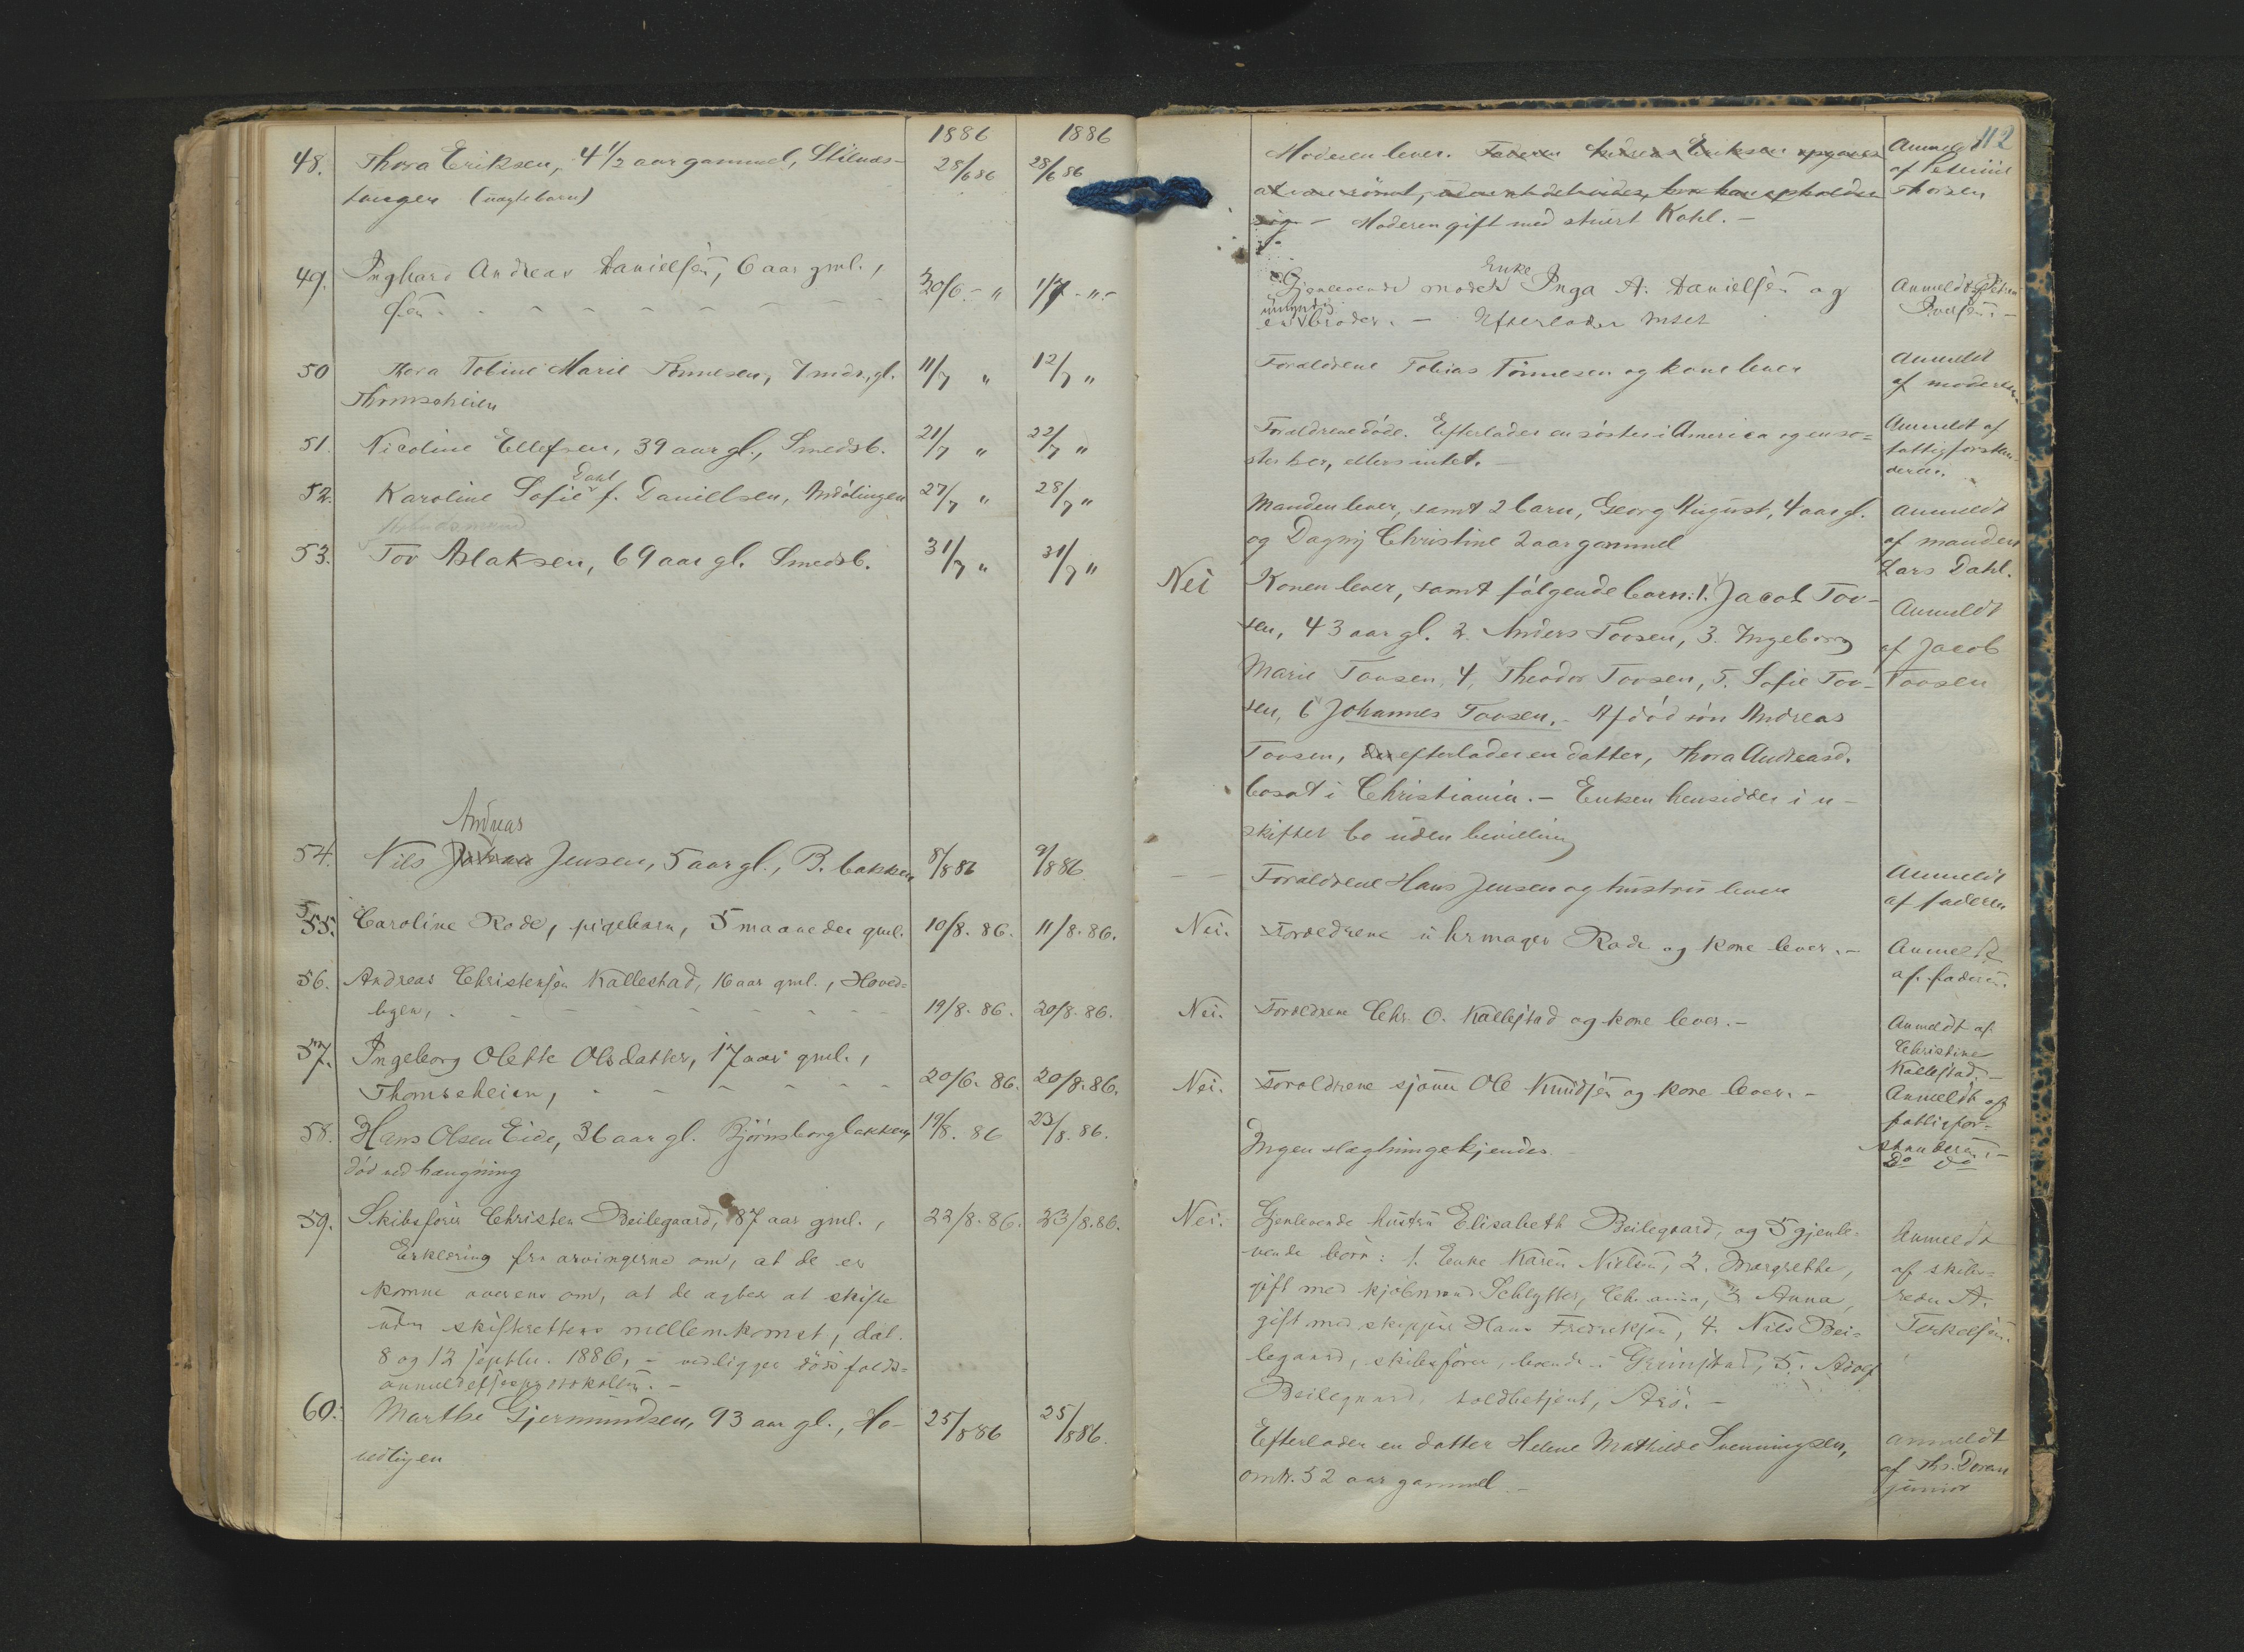 1886 1886
48. Thora Eriksen, 4 1/2 aar gammel,
tangen (uægte barn) 28/6 86 28/6 86
49. Inghard Andreas Danielsen, 6 aar gml.,
30/6 - " 1/7 - " -
50 Thora Tobine Marie Tønnesen, 7 mdr. gl. 11/7 " 12/7 "
Thomsheien
51. Nicoline Ellefsen, 39 aar gl., Smedsb. 21/7 " 22/7 "
Dahl
52. Karoline Sofie f. Daniellsen, 27/7 " 28/7 "
53. Tov Aslaksen, 69 aar gl. Smedsb. 31/7 " 31/7 "
Andreas
54. Nils Jensen, 5 aar gl., B. bakken 8/8 86 9/8 86
55. Caroline Rode, pigebarn, 5 maaneder gml. 10/8. 86. 11/8. 86.
56. Andreas Christensen Kallestad, 16 aar gml., Hoved=
19/8. 86. 20/8. 86.
57. Ingeborg Olette Olsdatter, 17 aar gml.,
Thomseheien, 20/6. 86. 20/8. 86.
58. Hans Olsen Eide, 36 aar gl. Bjørnsborgbakken 19/8. 86 23/8. 86.
død ved hængning
59. Skibsfører Christen Beilegaard, 87 aar gml., 22/8. 86. 23/8. 86.
Erklæring fra arvingerne om, at de er
komne overens om, at de agter at skifte
uden skifterettens mellemkomst, dat.
8 og 12 septbr. 1886, - vedligger dødsfalds=
anmeldelsesprotokollen. -
60. Marthe Gjermundsen, 93 aar gl., Ho- 25/8 86 25/8 86.
vedtigen
112
Moderen lever. Faderen Andreas Eriksen opgives
at være rømt, uden at det vides, hvor han opholder
sig - Moderen gift med stuert Kahl. -
Anmeldt
af Petrine
Thorsen
Enke
Gjenlevende moder Inga A. Danielsen og
umyndig
en broder. - Efterlader intet
Anmeldt af
Iversen. -
Forældrene Tobias Tønnesen og kone lever
Anmeldt
af moderen
Forældrene døde. Efterlader en søster i America og en sø=
ster her, ellers intet. -
Anmeldt af
fattigforstan-
deren.
Manden lever, samt 2 barn, Georg August, 4 aar gl.
og Dagny Christine 2 aar gammel
Anmeldt
af manden
Lars Dahl.
Nei Konen lever, samt følgende barn: 1. Jacob Tov-
sen, 43 aar gl. 2. Anders Tovsen, 3. Ingeborg
Marie Tovsen, 4, Theodor Tovsen, 5. Sofie Tov-
sen, 6 Johannes Tovsen. - Afdød søn Andreas
Tovsen, der efterlader en datter, Thora Andreasd.
bosat i Christiania. - Enken hensidder i u-
skiftet bo uden bevilling
Anmeldt
af Jacob
Tovsen
Forældrene Hans Jensen og hustru lever
Anmeldt
af faderen
Nei. Forældrene uhrmager Rode og kone lever. -
Anmeldt
af faderen.
Nei. Forældrene Chr. O. Kallestad og kone lever. -
Anmeldt af
Christine
Kallestad. -
Nei. Forældrene sjømn Ole Knudsen og kone lever. -
Anmeldt af
fattigfor=
standeren. -
Ingen slægtninge kjendes. -
Do do
Nei. Gjenlevende hustru Elisabeth Beilegaard, og 5 gjenle=
vende børn: 1. Enke Karen Nielsen, 2. Margrethe,
gift med kjøbmand Schlytter, Chr.ania, 3. Anna,
gift med skipper Hans Fredriksen, 4. Nils Bei=
legaard, skibsfører, boende i Grimstad, 5. Adolf
Beilegaard, toldbetjent, -
Anmeldt
af skibs=
reder A.
Terkelsen.
Efterlader en datter Helene Mathilde Svenningsen,
omtr. 52 aar gammel. -
anmeldt
af Ths.
junior